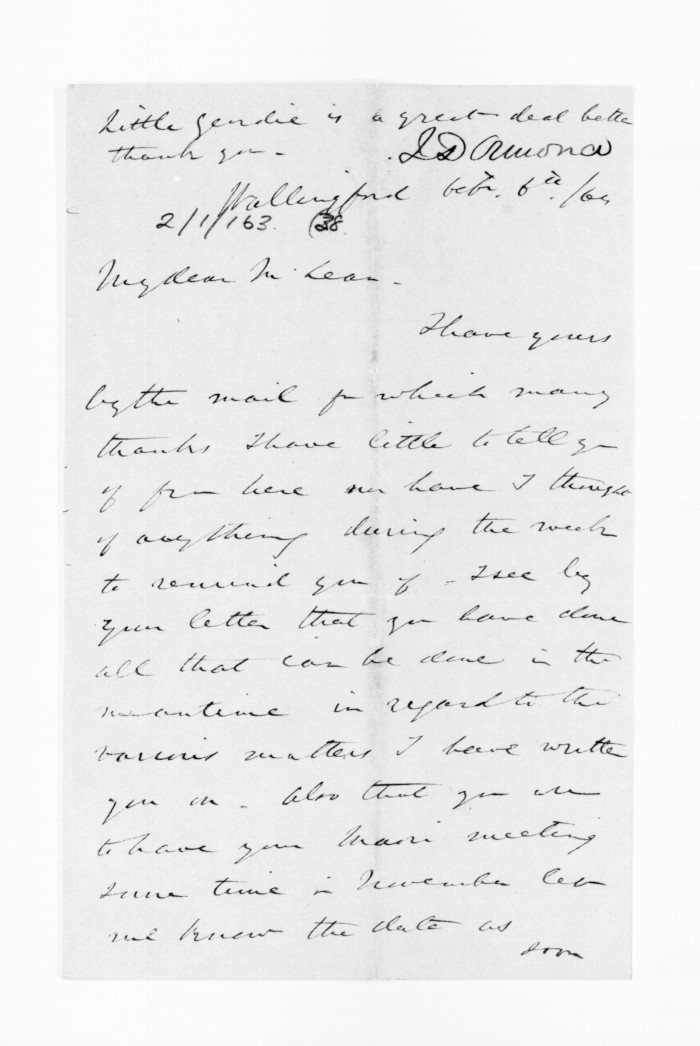 Little Geordie is a great deal better
thank you -
J D Ormond
Wallingford Octr. 6th /64
2/1/163. (38
My dear McLean -
I have yours
by the mail for which many
thanks I have little to tell you
of from here nor have I thought
of anything during the week
to remind you of - I see by
your letter that you have done
all that can be done in the
meantime in regard to the
various matters I have written
you on. Also that you are
to have your Maori meeting
some time in November let
me know the date as
soon